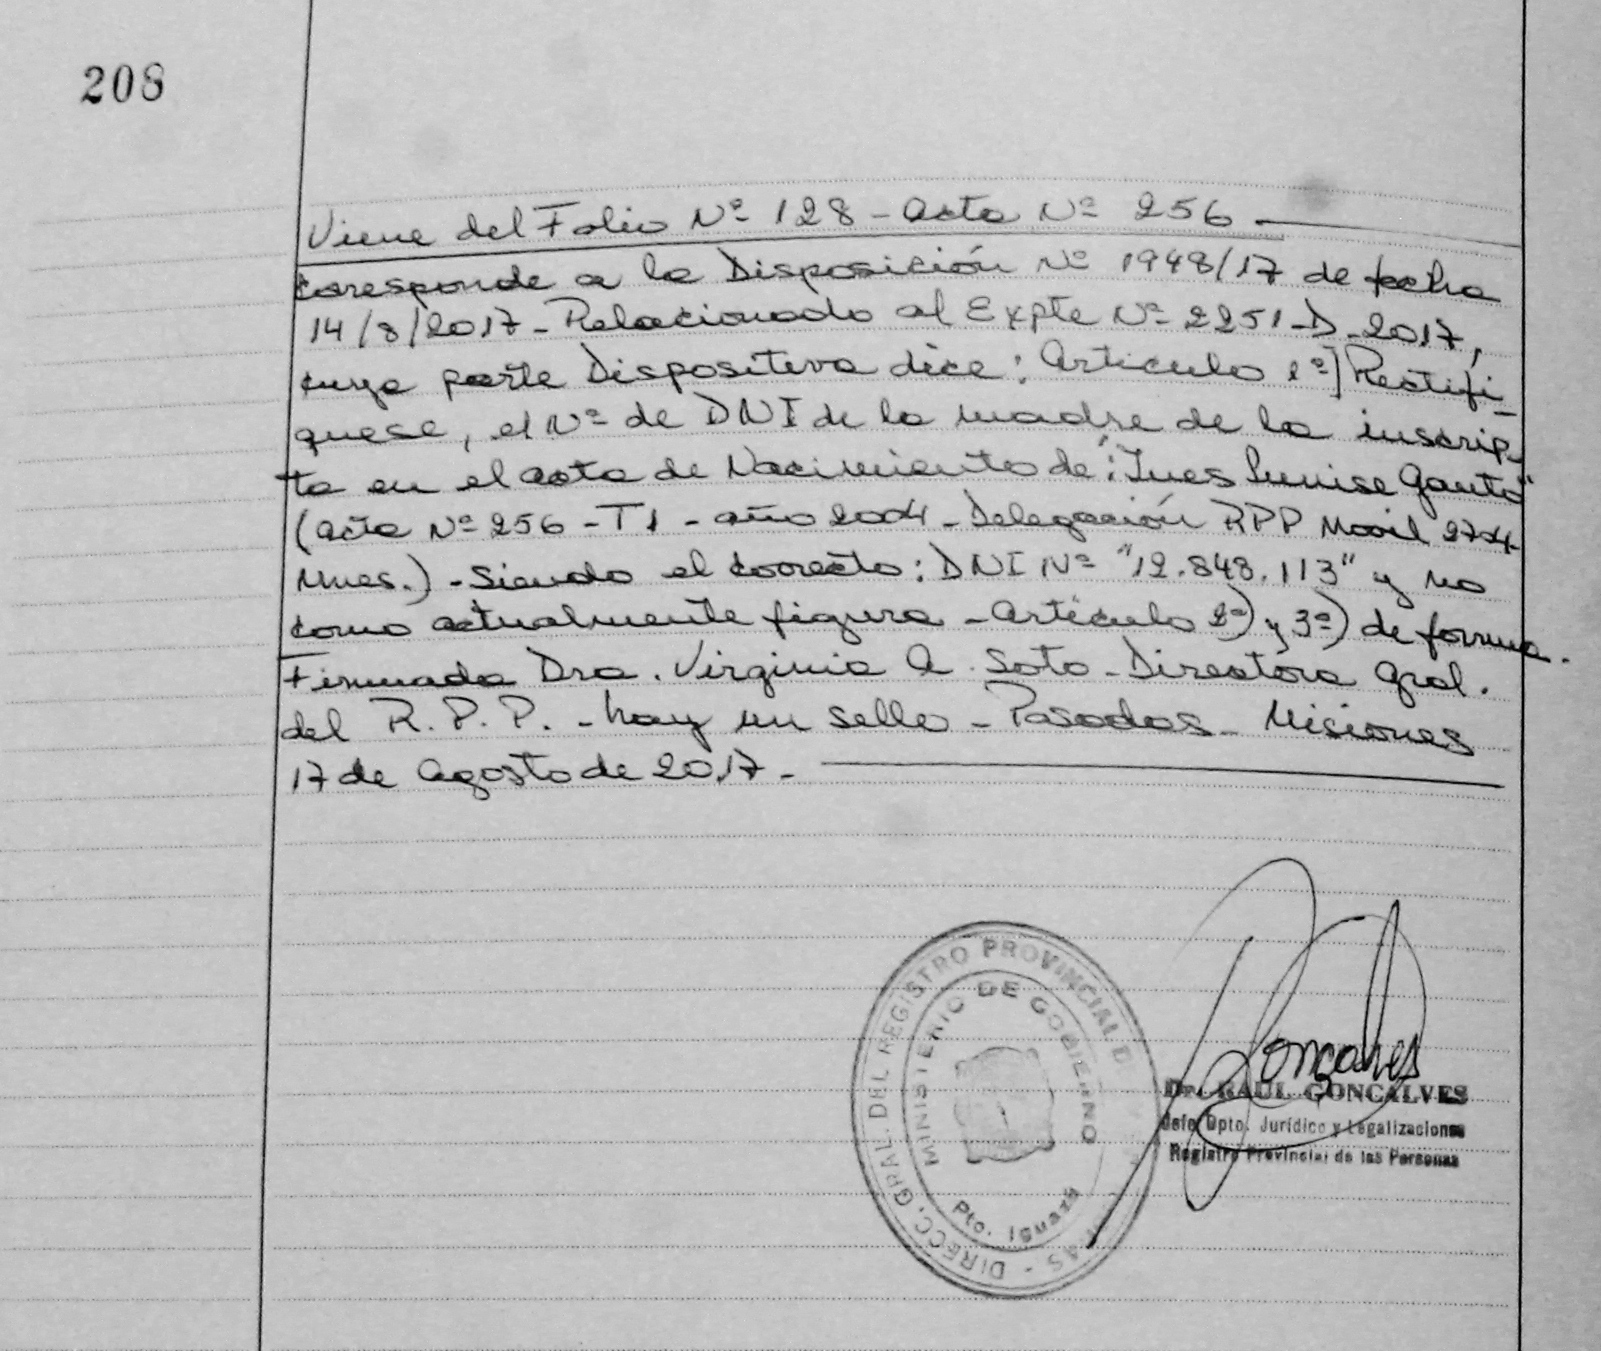 208
Viene del Folio Nº 128 - Acta Nº 256
Corresponde a la Disposición Nº 1948/17 de fecha
14/8/2017 - Relacionado al Expte Nº 2251-D-2017,
cuya parte Dispositiva dice: Artículo 1º] Rectifi-
quese, el Nº de DNI de la madre de la inscrip-
ta en el acta de Nacimiento de: "Ines Gauto"
(acta Nº 256 - T1 - año 2004 - Delegación RPP Movil 2704
Mnes.) - Siendo el correcto: DNI Nº "12.848.113" y no
como actualmente figura - Artículo 2º) y 3º) de forma.
Firmada Dra. Virginia A. Soto - Directora Gral.
del R.P.P. - hay un sello - Posadas - Misiones
17 de Agosto de 2017 -
DIRECC. GRAL. DEL REGISTRO PROVINCIAL D
MINISTERIO DE GOBIERNO
Pto. Iguazú
Gonçalves
Dr. RAUL GONCALVES
Jefe Dpto. Jurídico y Legalizaciones
Registro Provincial de las Personas